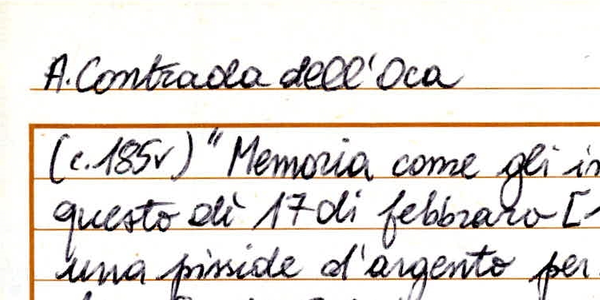 A. Contrada dell'Oca
(c.185v) "Memoria come gli
questo dì 17 di febbraro [
una pisside d'argento per